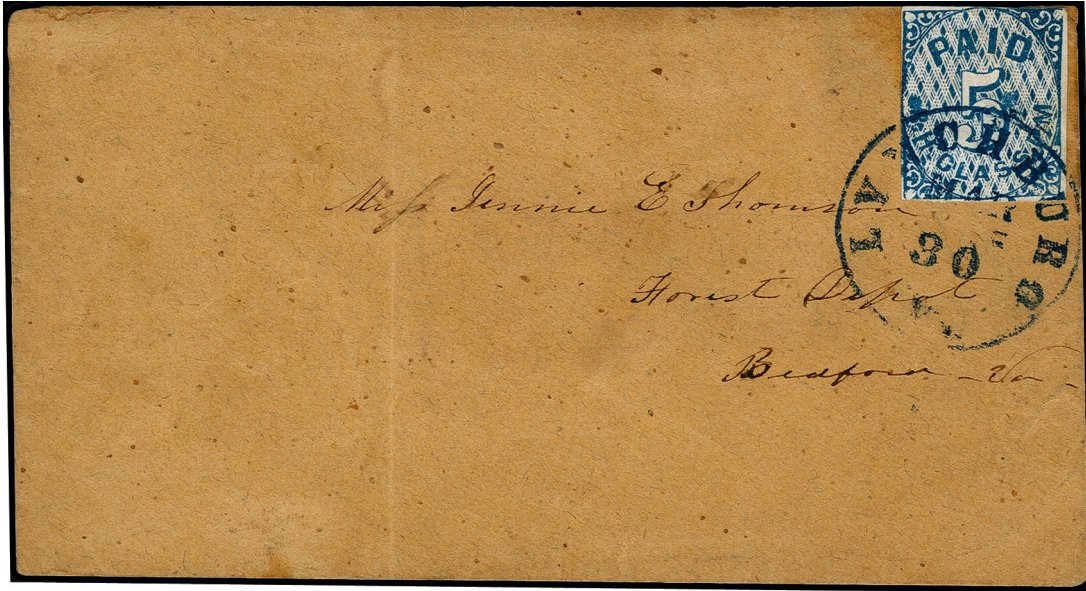 PAID
5
R.H. GLASS
LYNCHBURG
30
Va
Miss Jennie E Thomson
Forest Depot
Bedford - Va -